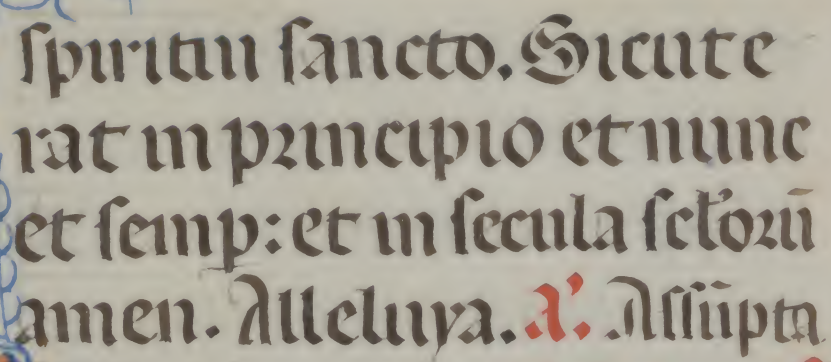 spiritui sancto. Sicut e
rat in principio et nunc
et semp: et in secula sclorū
amen. Alleluya. a'. Assūpta